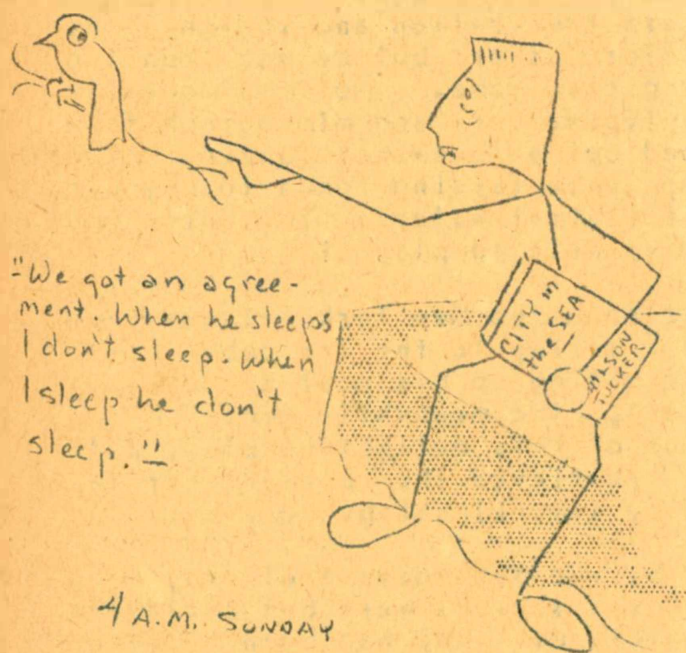 "We got an agree-
ment. When he sleeps
I don't sleep. When
I sleep he don't
sleep."
CITY in
the SEA
WILSON
TUCKER
4 A.M. SUNDAY